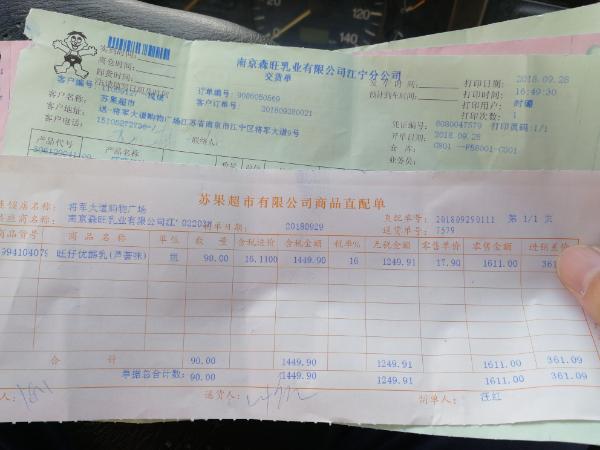 南京森旺乳业有限公司江宁分公司
交货单
离仓时间:
卸货时间:
客户编号
客户名称: 苏果超市
客户地址: 送-将军大道购物广场江苏省南京市江宁区将军大道9号
客户电话:
联络人:
订单编号: 9086050569
客户订单号: 201809280021
打印日期: 2018.09.28
打印时间: 16:49:30
打印用户:
打印次数: 1
凭证编号: 8080047579 打印页码 1/1
开单日期: 2018.09.28
仓 库:
业务员:
产品代号
苏果超市有限公司商品直配单
将军大道购物广场
南京森旺乳业有限公司江
制单日期: 20180929
直配单号: 201809290111 第 1/1 页
送货单号: 7579
商品货号 商 品 名 称 单位 数 量 含税进价 含税金额 税率% 无税金额 零售单价 零售金额 进销差价
994104079 旺仔优酪乳(芦荟味) 组 90.00 16.1100 1449.90 16 1249.91 17.90 1611.00 361
合 计 90.00 1449.90 1249.91 1611.00 361.09
单据总合计数: 90.00 1449.90 1249.91 1611.00 361.09
送货人:
制单人: 汪红